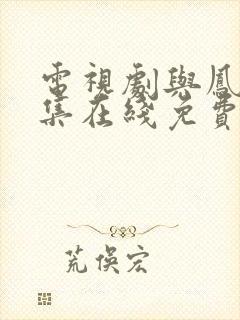 電視劇與鳳
集在綫免費
荒俁宏